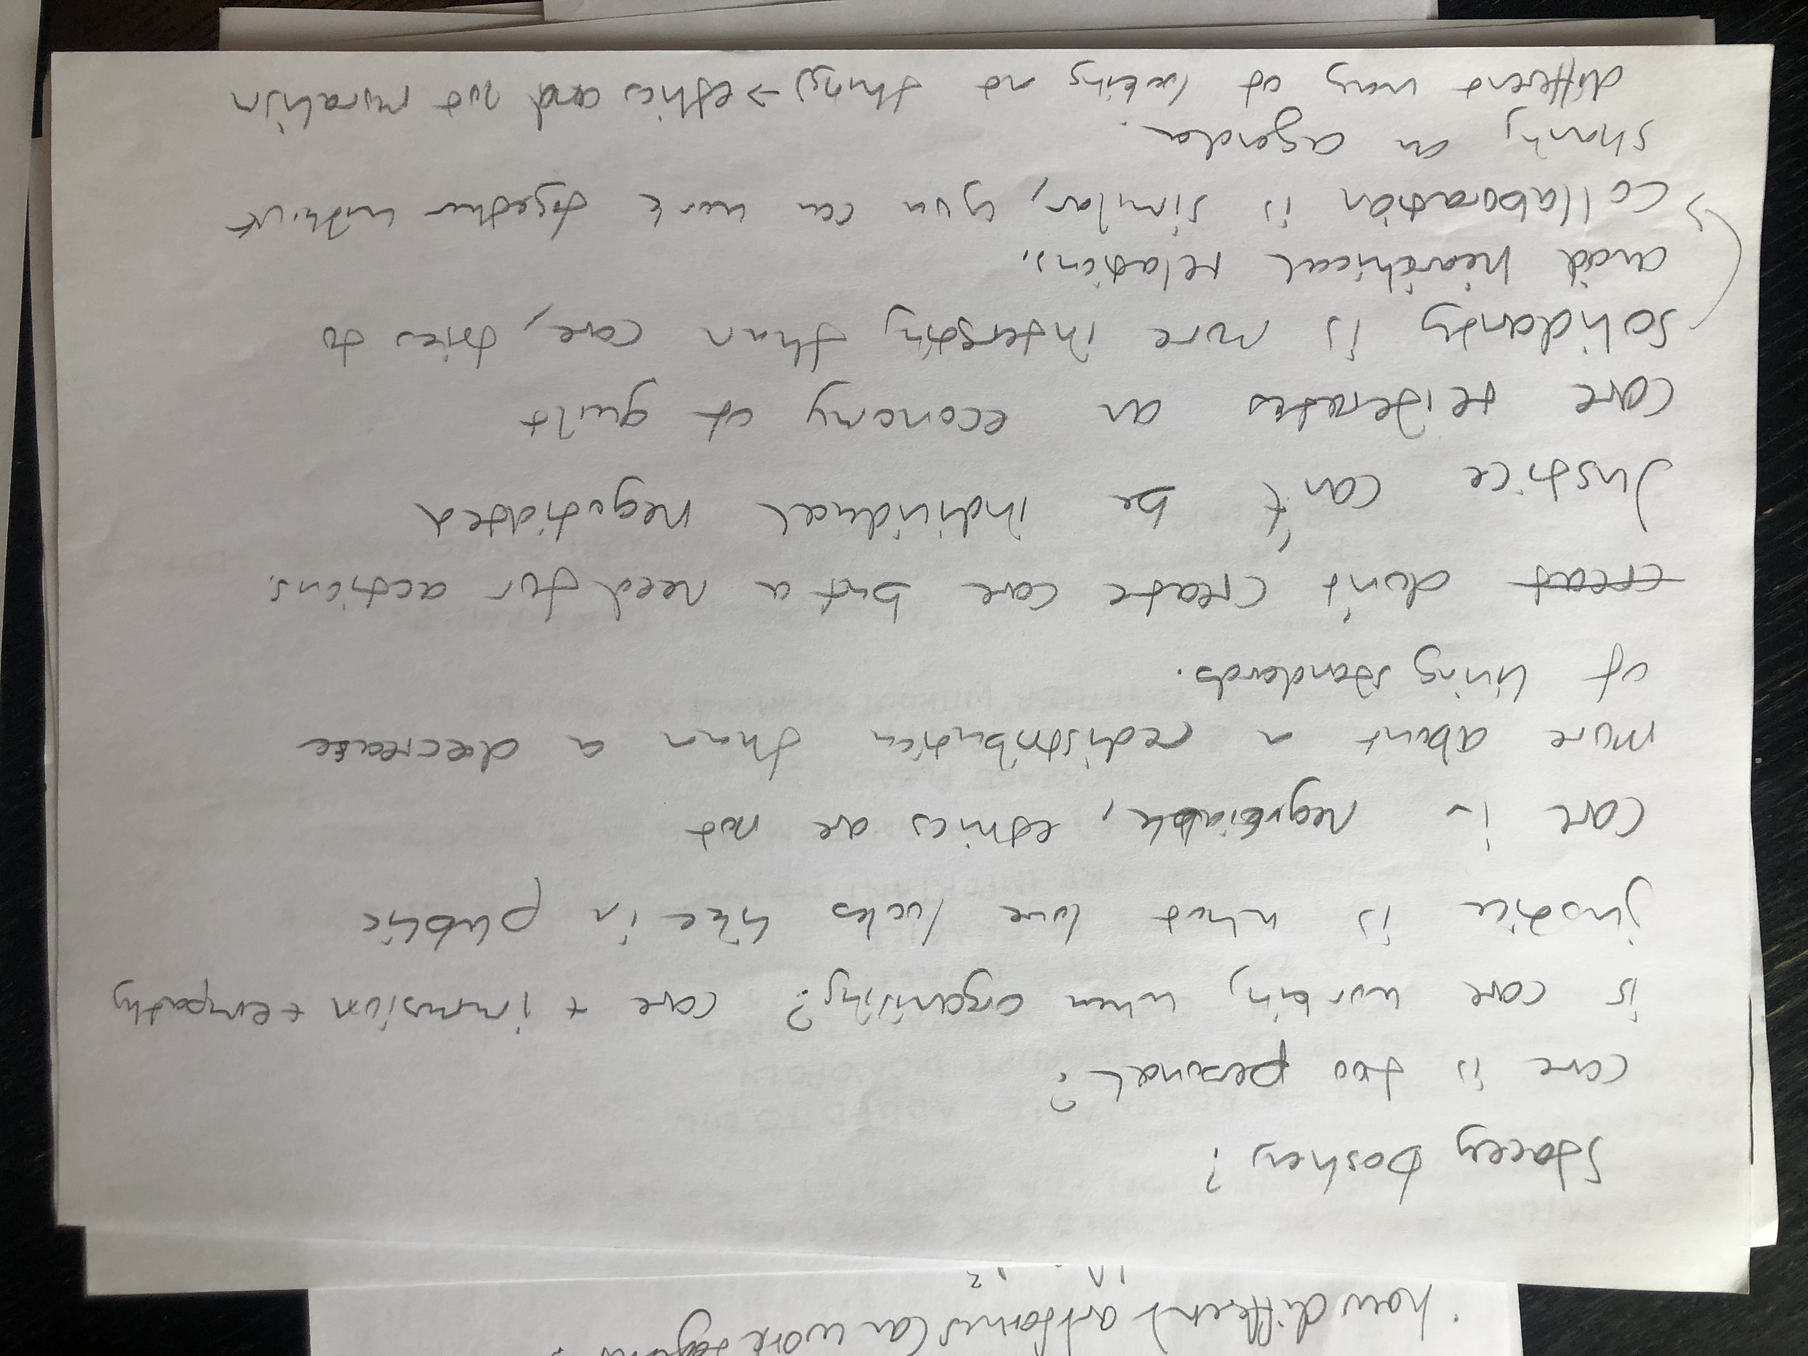 how different artforms can work together?
Stacey Boshery?
care is too personal?
is care working when organising? care + inmrsion + empathy
justice is what love looks like in public
care is negotiable, ethics are not
more about a redistribution than a decrease
of living standards.
creat don't create care but a need for actions.
Justice can't be individual negotiated
care reiterates an economy of guilt
Solidarity is more interesting than care, tries to
avoid hiearchical relations.
→ collaboration is similar, you can work together without
sharing an agenda.
different way of looking at things → ethics and not moralism